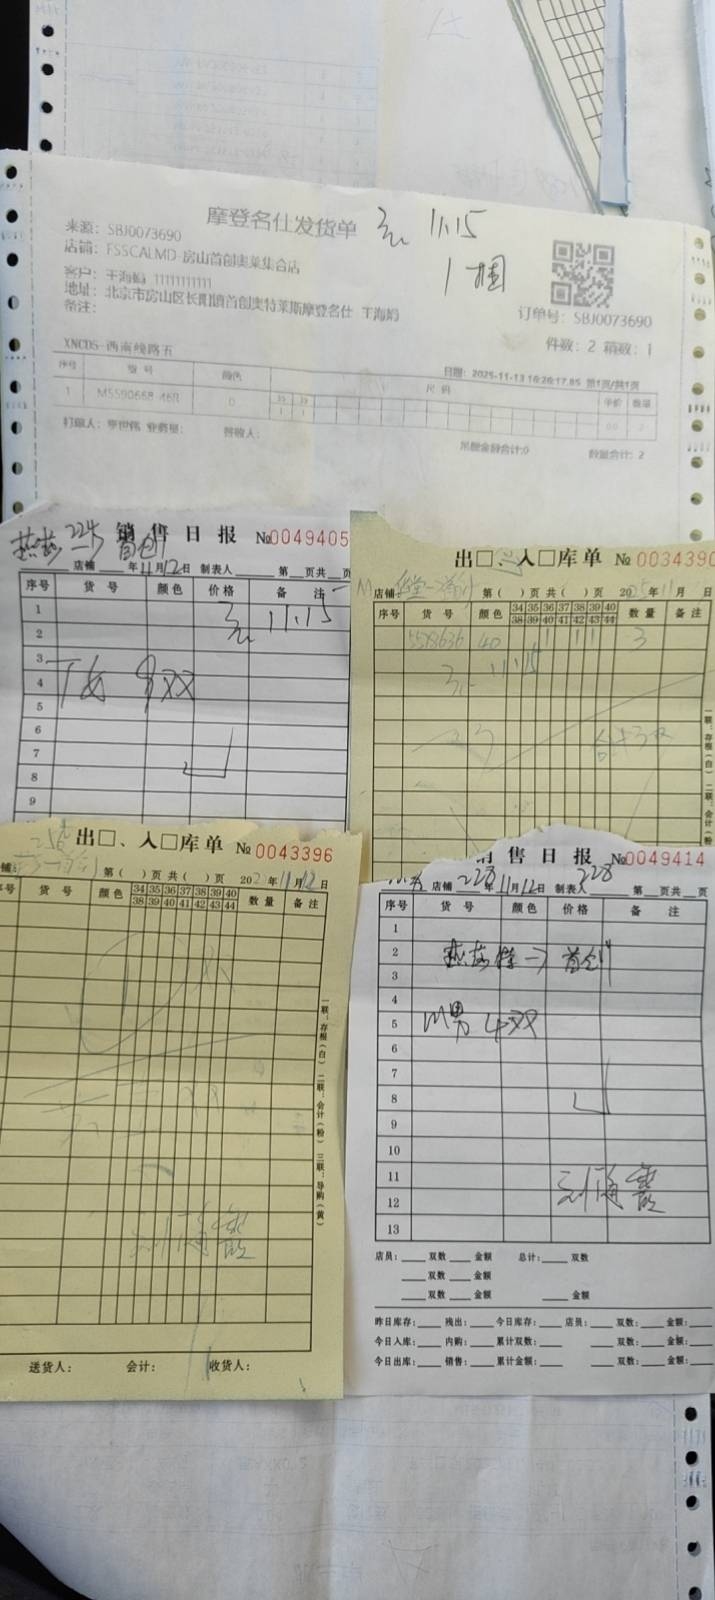 摩登名仕发货单
11.15
1捆
来源：SBJ0073690
店铺：FSSCALMD-房山首创奥莱集合店
客户：王海娟 11111111111
地址：北京市房山区长阳镇首创奥特莱斯摩登名仕 王海娟
备注：
订单号：SBJ0073690
件数：2 箱数：1
XNCDS-西南线路五
日期：2025-11-13 16:26:17.85 第1页/共1页
序号 型号 颜色 尺码 单价 数量
1 MS590668-46R 0 2
打单人：李世伟 业务员： 签收人：
吊牌金额合计:0 数量合计：2
224
销售日报 №0049405
店铺 年11月12日 制表人 第 页共 页
序号 货号 颜色 价格 备注
1
11.15
2
3
4
双
5
6
7
8
9
出□、入□库单 №0034390
店铺： 第( )页共( )页 2025年11月 日
序号 货号 颜色 34 35 36 37 38 39 40 数量 备注
38 39 40 41 42 43 44
5578636 40 1 1 1 3
11.15
合计3双
一联：存根(白) 二联：会计(粉
256
出□、入□库单 №0043396
铺： 第( )页共( )页 202 年11月12日
号 货号 颜色 34 35 36 37 38 39 40 数量 备注
38 39 40 41 42 43 44
双
一联：存根(白) 二联：会计(粉) 三联：导购(黄)
送货人： 会计： 收货人：
销售日报 №0049414
店铺 228 年11月12日 制表人 228 第 页共 页
序号 货号 颜色 价格 备注
1
2
→首创
3
4
5
男 4双
6
7
8
9
10
11
12
13
店员： 双数 金额 总计： 双数
双数 金额
双数 金额 金额
昨日库存： 残出： 今日库存： 店员： 双数： 金额：
今日入库： 内购： 累计双数： 双数： 金额：
今日出库： 销售： 累计金额： 双数： 金额：